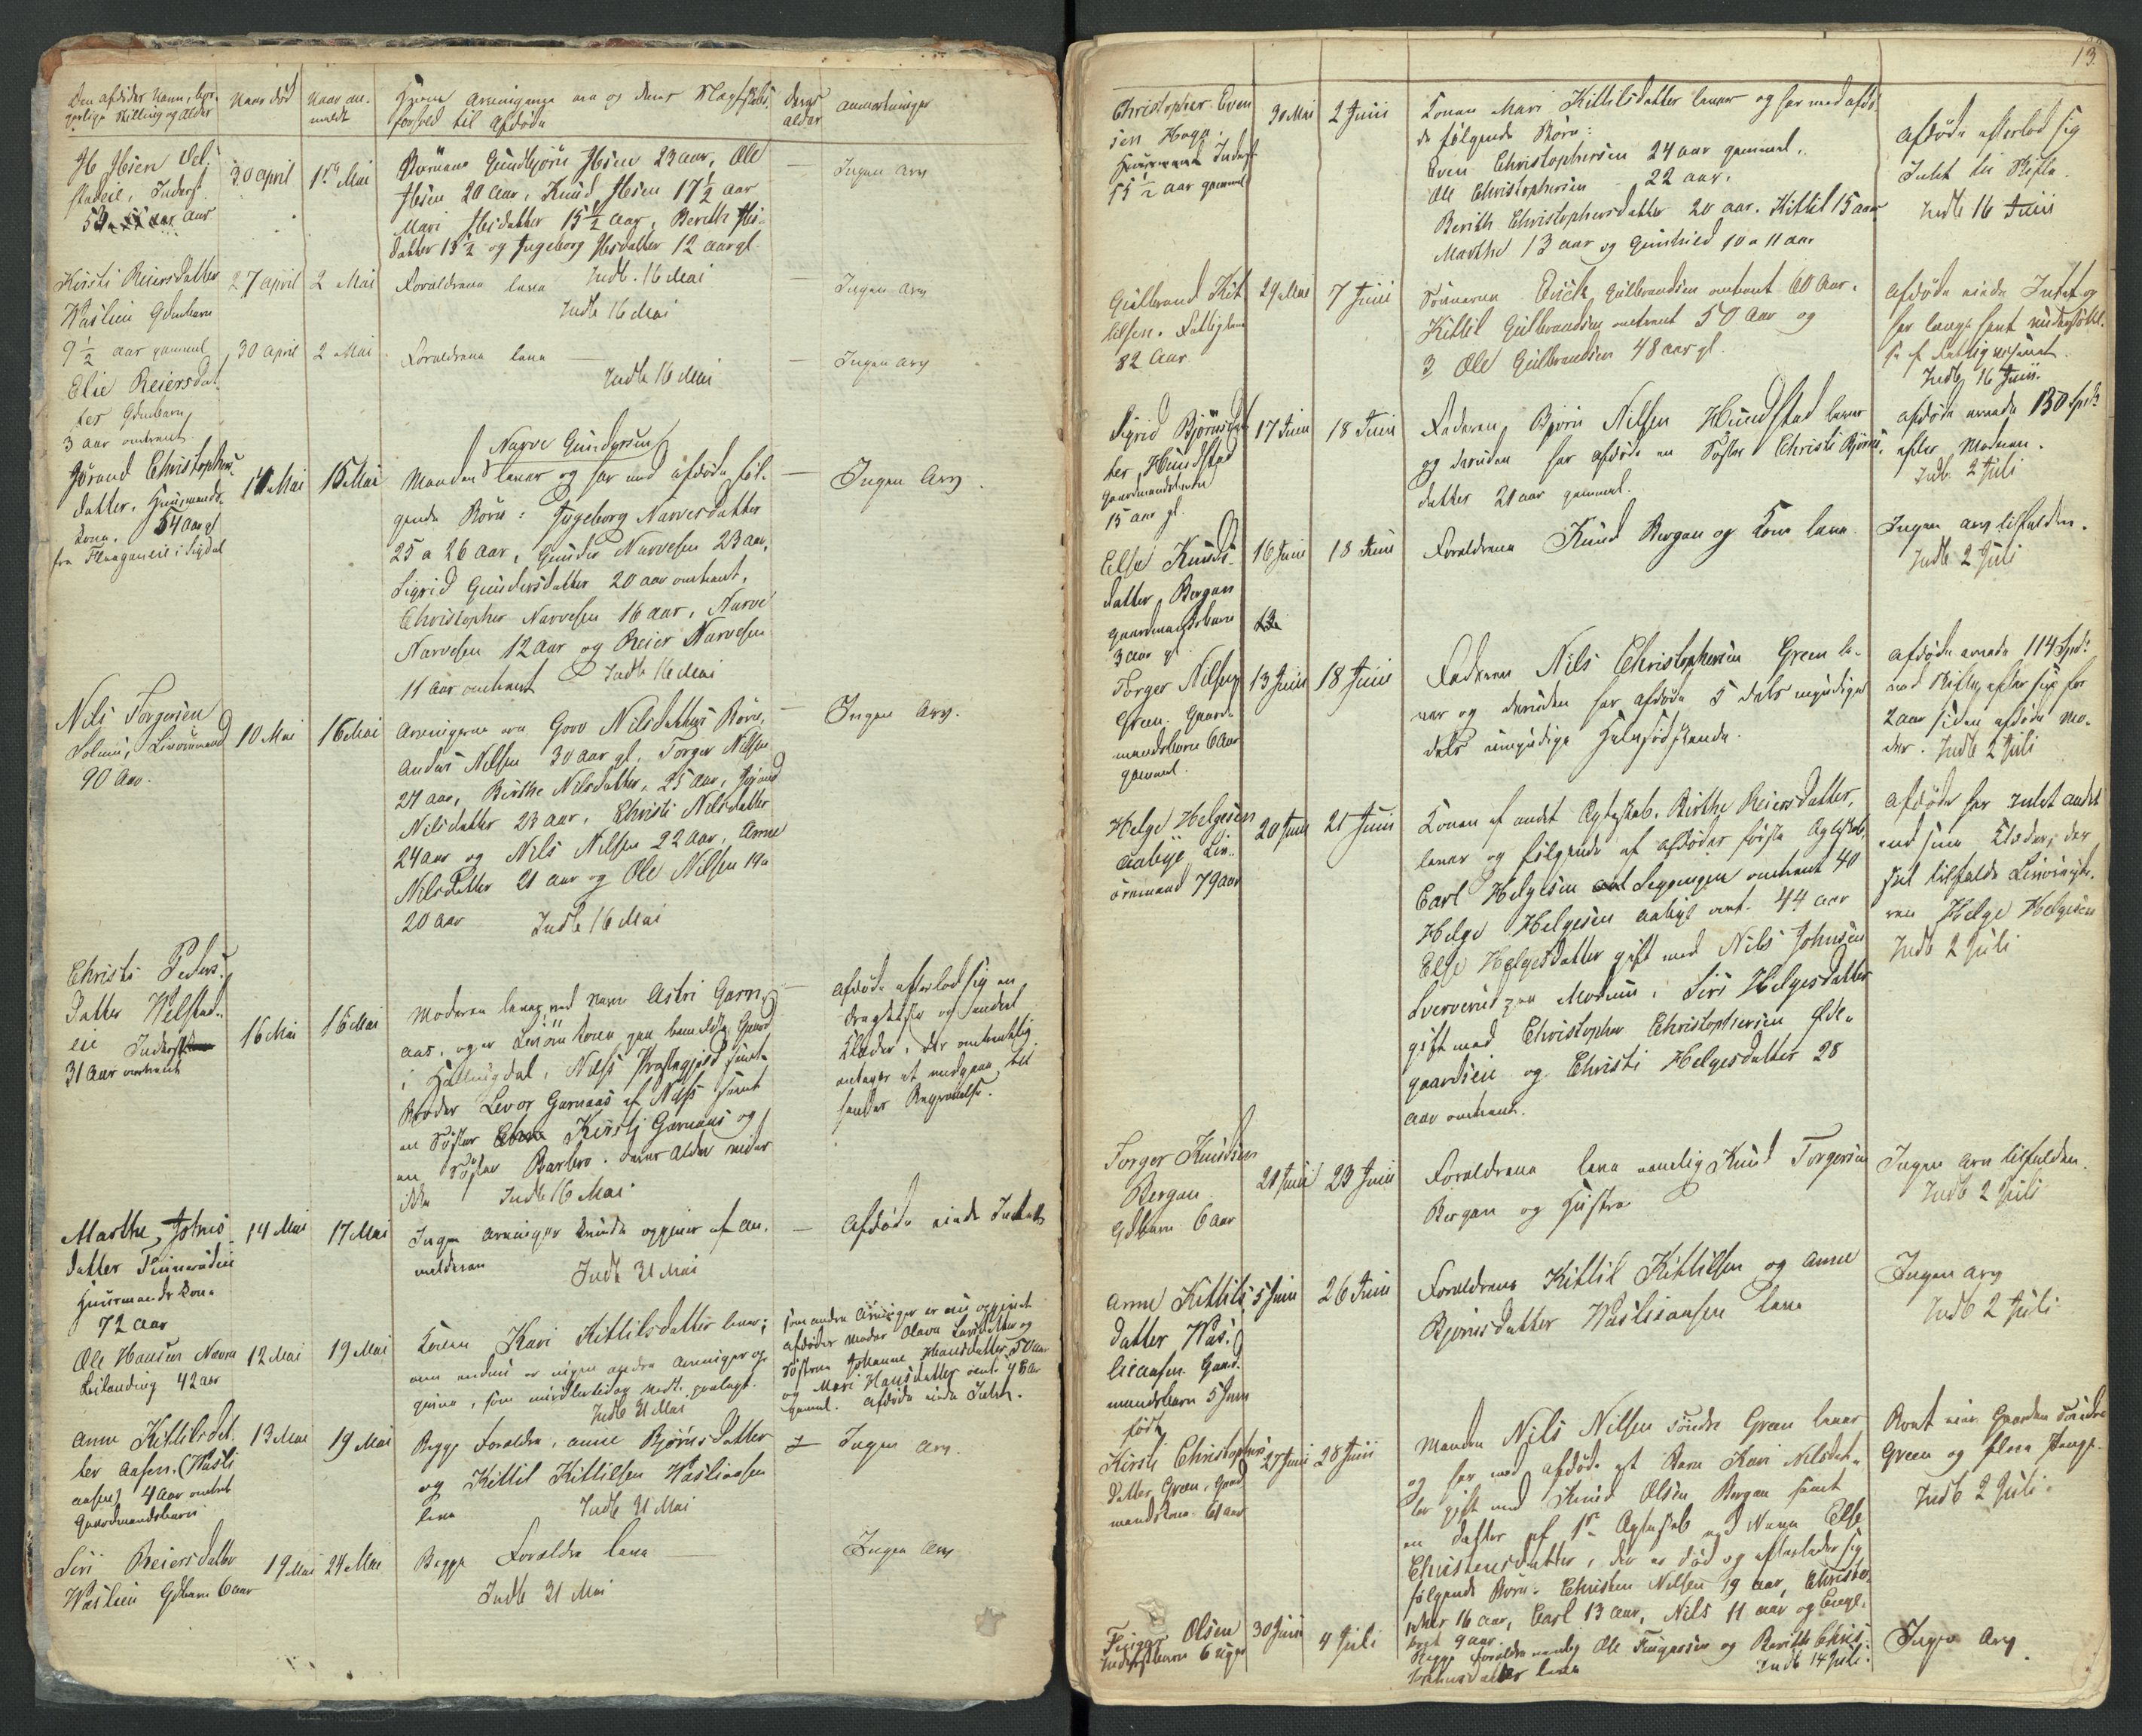 Den afdødes Navn, bor-
gerlige Stilling og Alder
Naar død
Naar an-
meldt
Hvem Arvingerne ere og deres Slægtskabs
forhold til Afdøde
deres
alder
Anmærkninger
Ib Ibsen Vel-
stadeie, Inderst
30 april
1ste Mai
Børnene Gundbjørn Ibsen 23 aar, Ole
Ibsen 20 aar, Knud Ibsen 17 1/2 aar
Mari Ibsdatter 15 1/2 aar, Berith Ibs-
datter 13 1/2 og Ingeborg Ibsdatter 12 aar gl.
Indb. 16 Mai
Ingen Arv
Kirsti Reiersdatter
Waslien Gdmbarn
9 1/2 aar gammel
27 april
2 Mai
Forældrene leve
Indb 16 Mai
Ingen Arv
Elie Reiersdat-
ter Gdmbarn
3 aar omtrent
30 april
2 Mai
Forældrene leve
Indb 16 Mai
Ingen Arv
Jørand Christophers-
datter, Huusmands-
kone, 54 aar gl
fra Flaaganeie i Sigdal
11 Mai
15 Mai
Narve Gundersen
Manden lever og har med afdøde føl-
gende Børn: Ingeborg Narvesdatter
25 a 26 aar, Gunder Narvesen 23 aar,
Sigrid Gundersdatter 20 aar omtrent,
Christopher Narvesen 16 aar, Narve
Narvesen 12 aar og Reier Narvesen
11 aar omtrent Indb 16 Mai
Ingen Arv.
Nils Torgersen
Livøremand
90 Aar.
10 Mai
16 Mai
Arvingerne ere Goro Nilsdatters Børn,
Anders Nilsen 30 aar gl, Torger Nilsen
27 aar, Birthe Nilsdatter, 25 aar, Jørand
Nilsdatter 23 aar, Christi Nilsdatter
24 aar og Nils Nilsen 22 aar, Anne
Nilsdatter 21 aar og Ole Nilsen 19 a
20 aar Indb 16 Mai
Ingen Arv.
Christi Peders-
datter Welstad-
eie Inderst
31 aar omtrent
16 Mai
16 Mai
Moderen lever ved navn Astri Garn-
aas, og er Livørekone paa bemeldte Gaard
i Hallingdal, Næss Præstegjeld samt
Broder Levor Garnaas af Næss samt
en Søster Kirsti Garnaas og
en Søster Barbro. deres Alder vides
ikke Indb 16 Mai
afdøde efterlod sig en
Dragkiste og endeel
Klæder, der omtrentlig
antages at medgaae til
hendes Begravelse.
Marthe Johns-
datter Finnerudeie
Huusmandskone
72 aar
14 Mai
17 Mai
Ingen Arvinger kunde opgives af An-
melderen
Indb 31 Mai
Afdøde eiede Intet
Ole Hansen Narem
Leilænding 42 aar
12 Mai
19 Mai
Konen Kari Kittilsdatter lever;
om endnu er nogen andre Arvinger op-
givne, som
Indb 31 Mai
som andre Arvinger er nu opgivet
afdødes Moder Olava Larsdatter og
Søstrene Johanne Hansdatter 50 aar
og Mari Hansdatter omt. 48 aar
gammel. Afdøde eiede Intet.
Anne Kittilsdat-
ter Aasen. (Wasli
aasen) 4 aar omtrent
Gaardmandsbarn
13 Mai
19 Mai
Begge Forældre, Anne Bjørnsdatter
og Kittil Kittilsen Wasliaasen
leve Indb 31 Mai
Ingen Arv.
Siri Reiersdatter
Waslien Gdbarn 6 aar
19 Mai
24 Mai
Begge Forældre leve
Indb 31 Mai
Ingen Arv
13
Christopher Even
sen Haga,
Inderst
55 1/2 aar gammel
30 Mai
2 Juni
Konen Mari Kittilsdatter lever og har med afdø-
de følgende Børn:
Even Christophersen 24 aar gammel.
Ole Christophersen 22 aar.
Berith Christophersdatter 20 aar. Kittil 15 aar
Marthe 13 aar og Gunhild 10 a 11 aar
Afdøde efterlod sig
Intet til Skifte.
Indb 16 Juni
Gulbrand Kit
tilsen. Fattiglem
82 Aar
29 Mai
7 Juni
Sønnerne Erick Gulbrandsen omtrent 60 Aar.
Kittil Gulbrandsen omtrent 50 Aar og
3, Ole Gulbrandsen 48 aar gl.
Afdøde eiede Intet og
har længe været understøttet
af Fattigvæsenet.
Indb 16 Juni.
Sigrid Bjørnsdat-
ter Hundstad
Gaardmandsbarn
15 aar gl.
17 Juni
18 Juni
Faderen Bjørn Nilsen Hundstad lever
og desuden har afdøde en Søster Christi Bjørns-
datter 21 aar gammel.
Afdøde arvede 130 Spd
efter Moderen.
Indb. 2 Juli
Else Knuds-
datter Bergan
Gaardmandsbarn
3 aar gl.
16 Juni
18 Juni
Forældrene Knud Bergan og Kone leve
Ingen Arv tilfalden.
Indb 2 Juli
Torger Nilsen
Green. Gaard-
mandsbarn 6 aar
gammel.
13 Juni
18 Juni
Faderen Nils Christophersen Green le-
ver og desuden har afdøde 5 dels myndige
dels umyndige Halvsødskende.
Afdøde arvede 114 Spd
ved Skiftet efter sin for
2 aar siden afdøde Mo-
der. Indb 2 Juli
Helge Helgesen
Aabye, Liv-
øremand 79 aar
20 Juni
21 Juni
Konen af andet Ægteskab, Birthe Reiersdatter,
lever og følgende af afdødes første Ægteskab,
Carl Helgesen omtrent 40
Helge Helgesen Aabye omt. 44 aar
Else Helgesdatter gift med Nils Johnsen
paa Modum, Siri Helgesdatter
gift med Christopher Christophersen
gaardseie og Christi Helgesdatter 28
aar omtrent.
Afdøde har Intet andet
end sine Klæder, der
Helge Helgesen
Indb 2 Juli
Torger Knudsen
Bergan
Gdbarn 6 aar
21 Juni
23 Juni
Forældrene leve nemlig Knud Torgersen
Bergan og Hustru
Ingen Arv tilfalden.
Indb 2 Juli
Anne Kittils-
datter Was-
lieaasen. Gaard-
mandsbarn 5 Juni
født
5 Juni
26 Juni
Forældrene Kittil Kittilsen og Anne
Bjørnsdatter Waslieaasen leve
Ingen Arv
Indb 2 Juli
Kirsti Christophers-
datter Green, Gaard-
mandskone 61 aar
27 Juni
28 Juni
Manden Nils Nilsen søndre Green lever
og har med afdøde et Barn Kari Nilsdat-
ter gift med Knud Olsen Bergan samt
en datter af 1ste Ægteskab ved Navn Else
Christensdatter, der er død og efterlader sig
følgende Børn: Christen Nilsen 19 aar, Christo-
pher 16 aar, Carl 13 aar, Nils 11 aar og Engel-
bret 9 aar.
Boet eier Gaarden søndre
Green og flere Penge
Indb 2 Juli.
Olsen
Inderstbarn 6 uger
30 Juni
4 Juli
Begge Forældre nemlig Ole og Berith Chris-
leve
Indb 14 Juli.
Ingen Arv